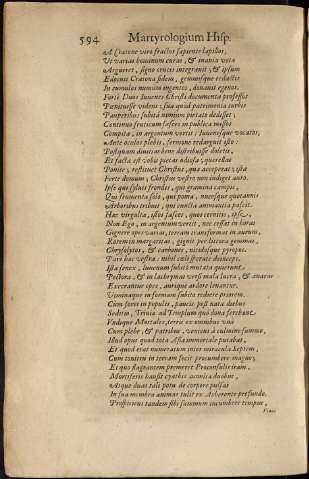 594 Martyrologium Hisp.
A Charone viro fractos sapiente lapillos,
Vt varias hominum curas, & inania vota
Argueret, signo crucis integrauit, & ipsum
Edocuit Cratona fidem, gemmisque redactis
In cumulos nummûm ingentes, donauit egenos.
Fortè Duos Iuuenes Christi documenta professos
Pœnituisse videns, sua quòd patrimonia turbis
Pauperibus subitò nimium pietate dedissent;
Continuo fruticum fasces in publica missos
Compita, in argentum vertit: Iuuenesque vocatos,
Ante oculos plebis, sermone redarguit isto:
Postquam diuitias bene distribuisse doletis,
Et facta est vobis pietas odiosa, querelas
Ponite, restituet Christus, quæ acceperat vsta
Forte domum, Christus vestro non indiget auro.
Ipse qui syluis frondes, qui gramina campis,
Qui frumenta solo, qui poma, nucesque quotannis
Arboribus tribuit, qui cuncta animantia pascit.
Has virgulta, istos fasces, quos cernitis, ipse,
Non Ego, in argentum vertit, nec cessat in horas
Gignere opes varias, terram transformat in aurum,
Rorem in margaritas, gignit per littora gemmas,
Chrysolytos, & carbones, nitidosque pyropos.
Parce hac vestra: nihil cælì sperate deinceps.
Ista senex, iuuenum subitò mutata quierunt
Pectora, & in lachrymas versi mala lucra, & auaras
Execrantur opes, auroque ardere lenuntur,
Viminaque in formam subitò rediere priorem.
Cùm fores in populis, paucis post nata diebus
Seditio, Triuia ad Templum quò dona ferebant
Vndique Mortales, terris ex omnibus vnà
Cum plebe, & patribus, ventum à culmine summo,
Illud opus quod tota Asia immortale putabat,
Et quod erat numeratum inter miracula septem,
Cum tonitru in terram fecit procumbere magno;
Et quo flagrantem premeret Proconsulis iram,
Mortiferis hausit cyathis aconita duobus,
Atque duas tali potu de corpore pulsas
In sua membra animas tulit ex Acheronte profundo.
Prospiciens tandem sibi summum incumbere tempus,